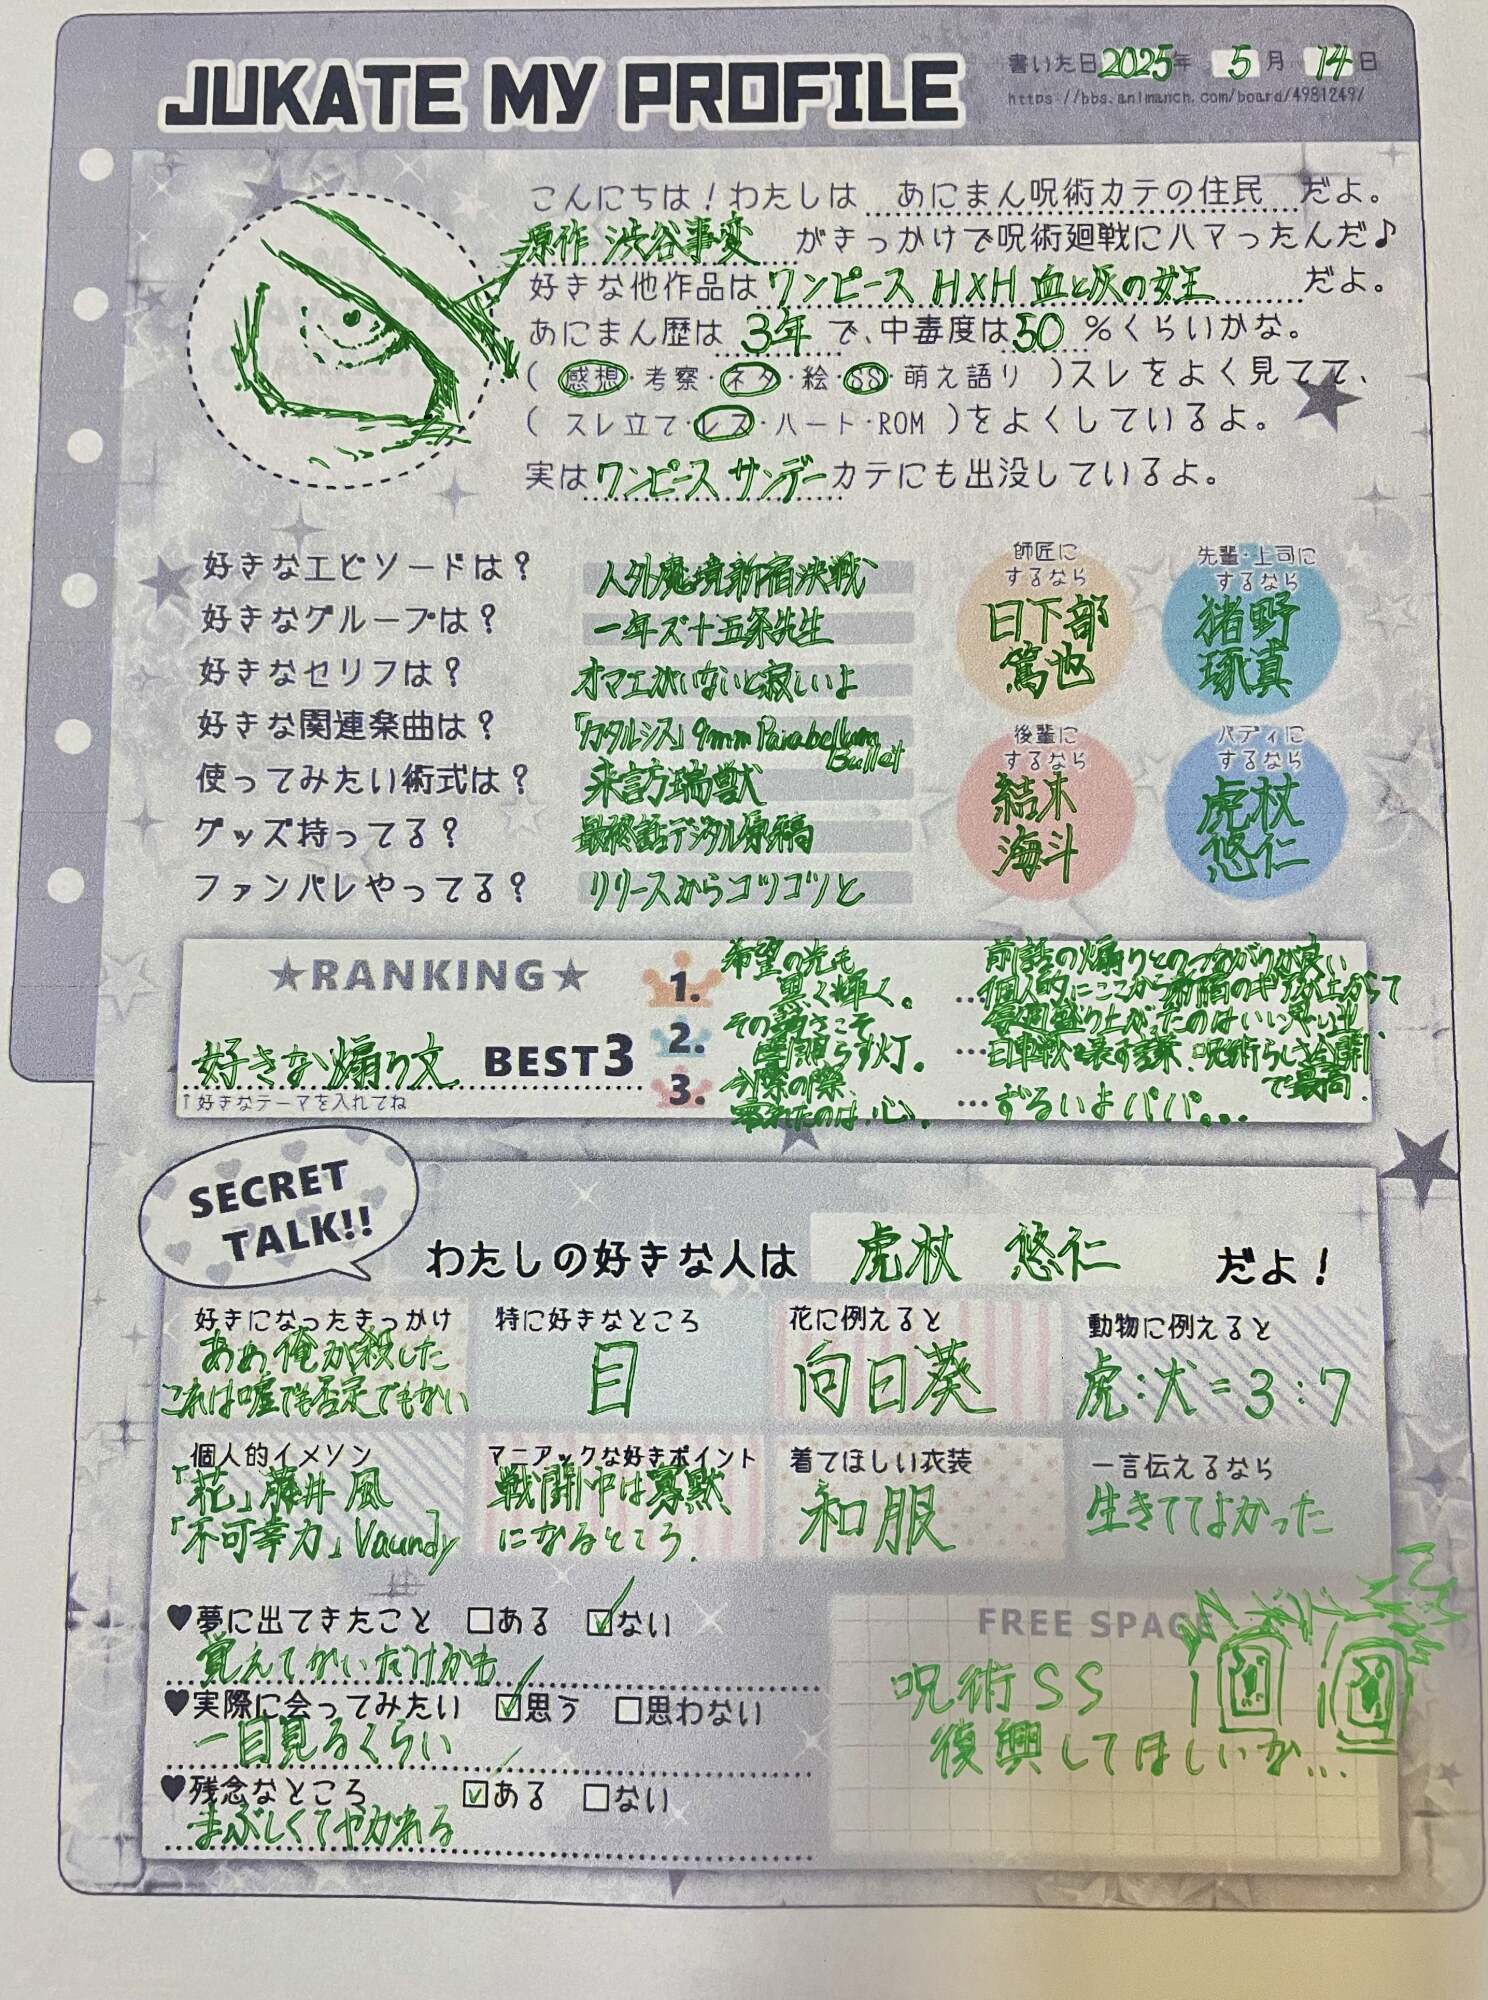 JUKATE MY PROFILE
書いた日 2025年 5月 14日
https://bbs.animanch.com/board/4981249/
こんにちは！わたしは あにまん呪術カテの住民 だよ。
原作 渋谷事変 がきっかけで呪術廻戦にハマったんだ♪
好きな他作品は ワンピース H×H 血と灰の女王 だよ。
あにまん歴は 3年 で、中毒度は 50 %くらいかな。
( 感想・考察・ネタ・絵・SS・萌え語り )スレをよく見てて、
( スレ立て・レス・ハート・ROM )をよくしているよ。
実は ワンピース サンデー カテにも出没しているよ。
好きなエピソードは？ 人外魔境新宿決戦
好きなグループは？ 一年ズ＋五条先生
好きなセリフは？ オマエがいないと寂しいよ
好きな関連楽曲は？ 「カタルシス」9mm Parabellum Bullet
使ってみたい術式は？ 来訪瑞獣
グッズ持ってる？ 最終話デジタル原稿
ファンパレやってる？ リリースからコツコツと
師匠に
するなら
日下部
篤也
先輩・上司に
するなら
猪野
琢真
後輩に
するなら
結木
海斗
バディに
するなら
虎杖
悠仁
★RANKING★
好きな煽り文 BEST3
↑好きなテーマを入れてね
1. 希望の光も
黒く輝く。
…前話の煽りとのつながりが良い
2. その弱さこそ
闇照らす灯。
…個人的にここから新宿のギアが上がって
毎週盛り上がったのはいい思い出。
日車戦を表す言葉、呪術らしさ全開
で最高.
3. 今際の際、
零れたのは、心。
…ずるいよパパ...
SECRET
TALK!!
わたしの好きな人は 虎杖 悠仁 だよ！
好きになったきっかけ
ああ 俺が殺した
これは嘘でも否定でもない
特に好きなところ
目
花に例えると
向日葵
動物に例えると
虎:犬=3:7
個人的イメソン
「花」藤井 風
「不可幸力」Vaundy
マニアックな好きポイント
戦闘中は寡黙
になるところ.
着てほしい衣装
和服
一言伝えるなら
生きててよかった
♥夢に出てきたこと □ある ☑ない
覚えてないだけかも
♥実際に会ってみたい ☑思う □思わない
一目見るくらい
♥残念なところ ☑ある □ない
まぶしくてやかれる
FREE SPACE
呪術SS
復興してほしいか...